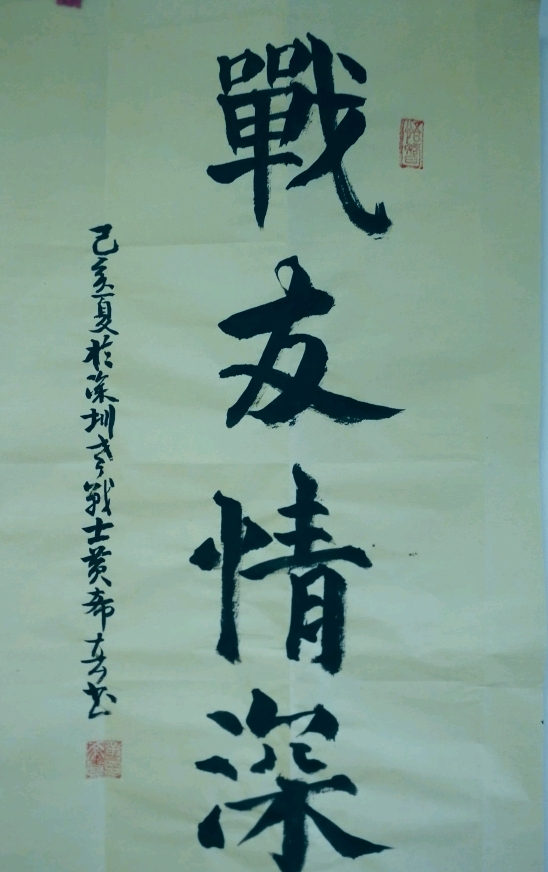 戰友情深
己亥夏於深圳老戰士黄希